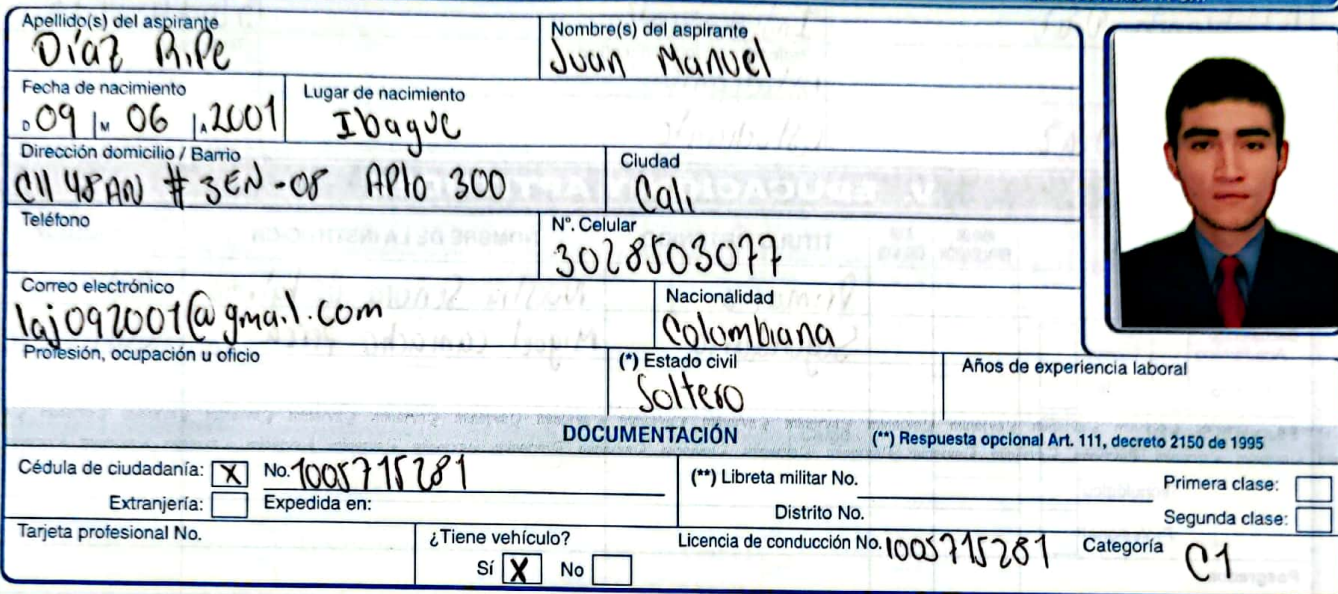 Apellido(s) del aspirante
Díaz Ripe
Nombre(s) del aspirante
Juan Manuel
Fecha de nacimiento
D 09 M 06 A 2001
Lugar de nacimiento
Ibague
Dirección domicilio / Barrio
Cll 48 AN # 3EN-08 APto 300
Ciudad
Cali
Teléfono
Nº. Celular
3028503077
Correo electrónico
laj092001@gmail.com
Nacionalidad
Colombiana
Profesión, ocupación u oficio
(*) Estado civil
Soltero
Años de experiencia laboral
DOCUMENTACIÓN
(**) Respuesta opcional Art. 111, decreto 2150 de 1995
Cédula de ciudadanía: X No. 1005715281
Extranjería: Expedida en:
(**) Libreta militar No.
Distrito No.
Primera clase:
Segunda clase:
Tarjeta profesional No.
¿Tiene vehículo?
Sí X No
Licencia de conducción No. 1005715281
Categoría C1